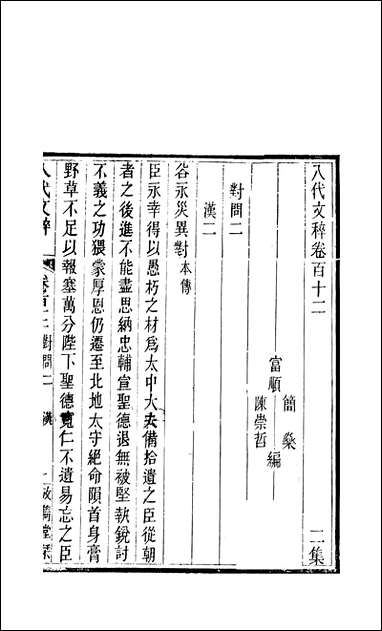 八代文粹卷百十二
二集
簡燊
富順 編
陳崇哲
對問二
漢二
谷永災異對本傳
臣永幸得以愚朽之材爲太中大夫備拾遺之臣從朝
者之後進不能盡思納忠輔宣聖德退無被堅執銳討
不義之功猥蒙厚恩仍遷至北地太守絕命隕首身膏
野草不足以報塞萬分陛下聖德寬仁不遺易忘之臣
八代文粹 卷百十二對問二 漢